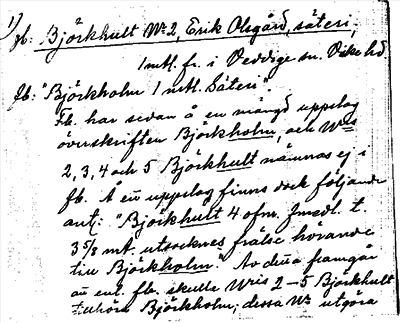 1)
fb. Björkhult No 2, Erik Olsgård, säteri,
1 mtl. fr. i Veddige sn. Viske hd
fb: "Björkholm 1 mtl. Säteri".
Fb. har sedan å en mängd uppslag
överskriften Björkholm, och Nris
2, 3, 4 och 5 Björkhult nämnas ej i
fb. Å en uppslag finns dock följande
ant: "Björkhult 4 ofm. t.
3 5/8 mt. utsocknes frälse hörande
till Björkholm." Av denna framgår
att enl. fb. skulle Nris 2–5 Björkhult
tillhöra Björkholm; dessa Nr utgöra